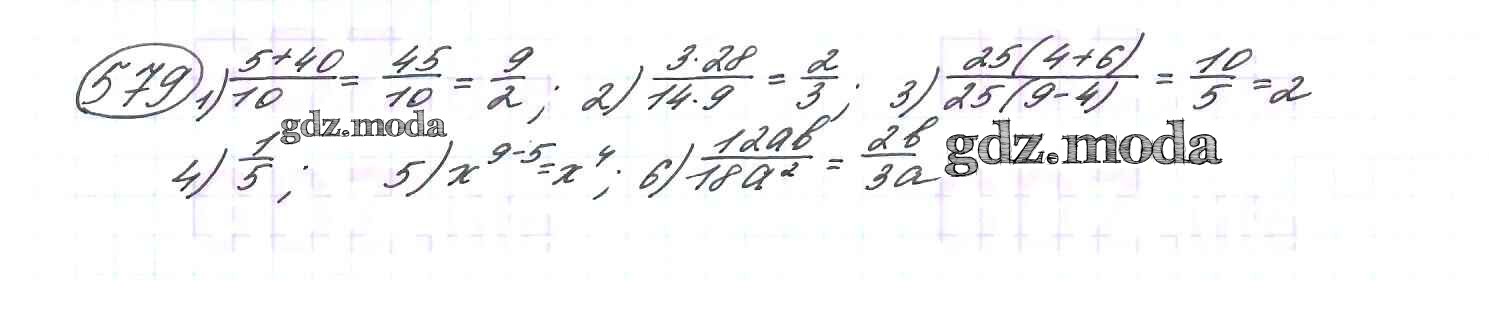 579 1) (5+40)/10 = 45/10 = 9/2 ; 2) (3·28)/(14·9) = 2/3 ; 3) 25(4+6)/25(9-4) = 10/5 = 2
gdz.moda
4) 1/5 ; 5) x^(9-5) = x^4 ; 6) 12ab/18a² = 2b/3a
gdz.moda